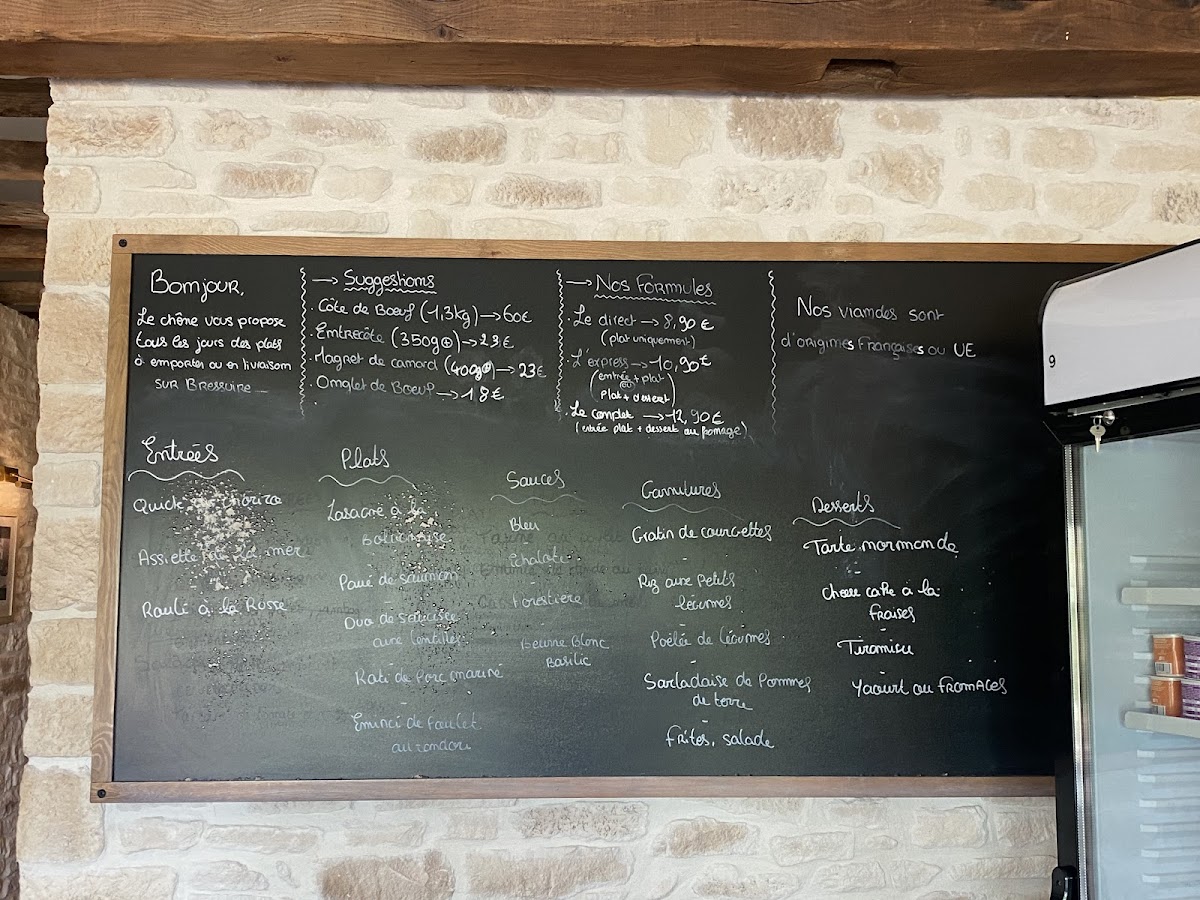 Bonjour,
Le chêne vous propose
tous les jours des plats
à emporter ou en livraison
SUR Bressuire
→ Suggestions
· Côte de Boeuf (1,3kg) → 60€
· Entrecôte (350g) → 23€
· Magret de canard (400g) → 23€
· Onglet de Boeuf → 18€
→ Nos Formules
· Le direct → 8,90€
(plat uniquement)
L'express → 10,90€
(entrée + plat
ou
plat + dessert)
· Le complet → 12,90€
(entrée plat + dessert ou fromage)
Nos viandes sont
d'origines Françaises ou UE
Entrées
Quick chorizo
Assiette de la mer
Rauli à la Rosse
Plats
Lasagne à la
Bolognaise
Pavé de saumon
Duo de saucisse
aux lentilles
Roti de Porc mariné
Emincé de Poulet
au tandori
Sauces
Bleu
Echalote
Forestière
Beurre Blanc
Basilic
Garnitures
Gratin de courgettes
-
Riz aux petits
légumes
-
Poêlée de légumes
-
Sarladaise de Pommes
de terre
-
Frites, salade
Desserts
Tarte normande
-
Cheese cake à la
fraises
-
Tiramisu
-
Yaourt ou FROMAGES
9